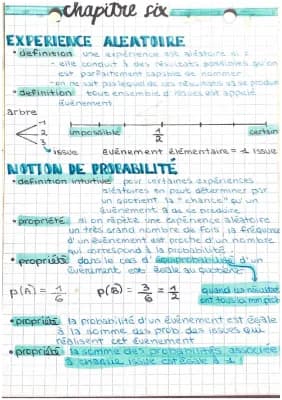 chapitre six
EXPERIENCE ALEATOIRE
• definition une expérience est aléatoire si :
- elle conduit à des résultats possibles qu'on
est parfaitement capable de nommer
- on ne sait pas lequel de ces résultats va se produire
• definition tout ensemble d'issues est appelé
évènement
arbre
1
2
3
issue
impossible 1/2 certain
évènement élémentaire = 1 issue
NOTION DE PROBABILITÉ
• definition intuitive pour certaines expériences
aléatoires on peut déterminer par
un quotient la "chance" qu'un
évènement a de se produire
• propriété si on répète une expérience aléatoire
un très grand nombre de fois, la fréquence
d'un évènement est proche d'un nombre
qui correspond à la probabilité.
• propriété dans le cas d'équiprobabilité d'un
évènement est égale au quotient
p(A) = 1/6 p(B) = 3/6 = 1/2
quand les résultats
ont tous la mm proba
• propriété la probabilité d'un évènement est égale
à la somme des prob. des issues qui
réalisent cet évènement
• propriété la somme des probabilités associée
à chaque issue est égale à 1